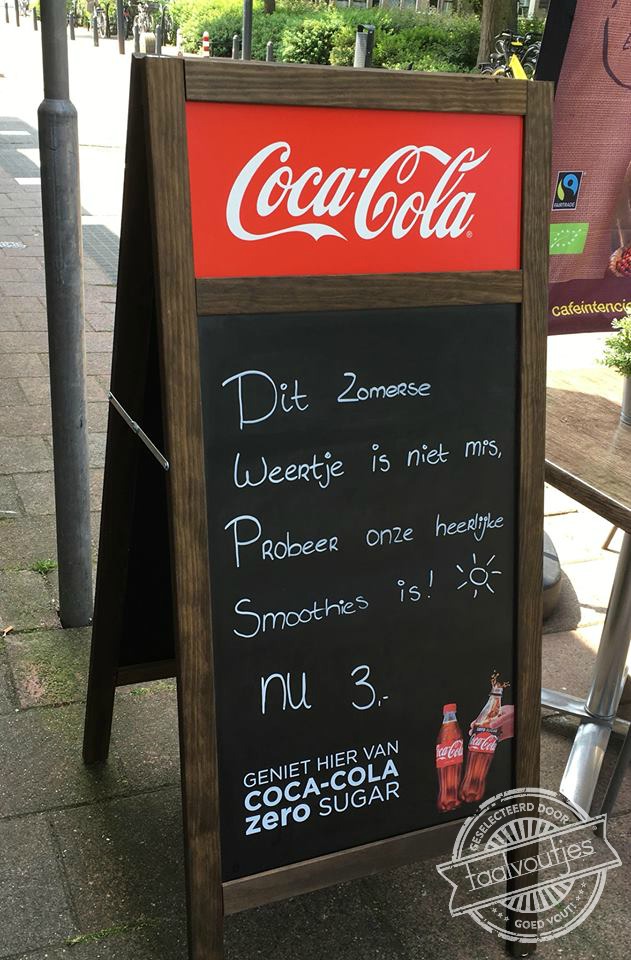 Coca-Cola
FAIRTRADE
cafeintencio
Dit Zomerse
Weertje is niet mis,
Probeer onze heerlijke
Smoothies is!
nu 3,-
GENIET HIER VAN
COCA-COLA
zero SUGAR
GESELECTEERD DOOR
taalvoutjes
GOED VOUT!